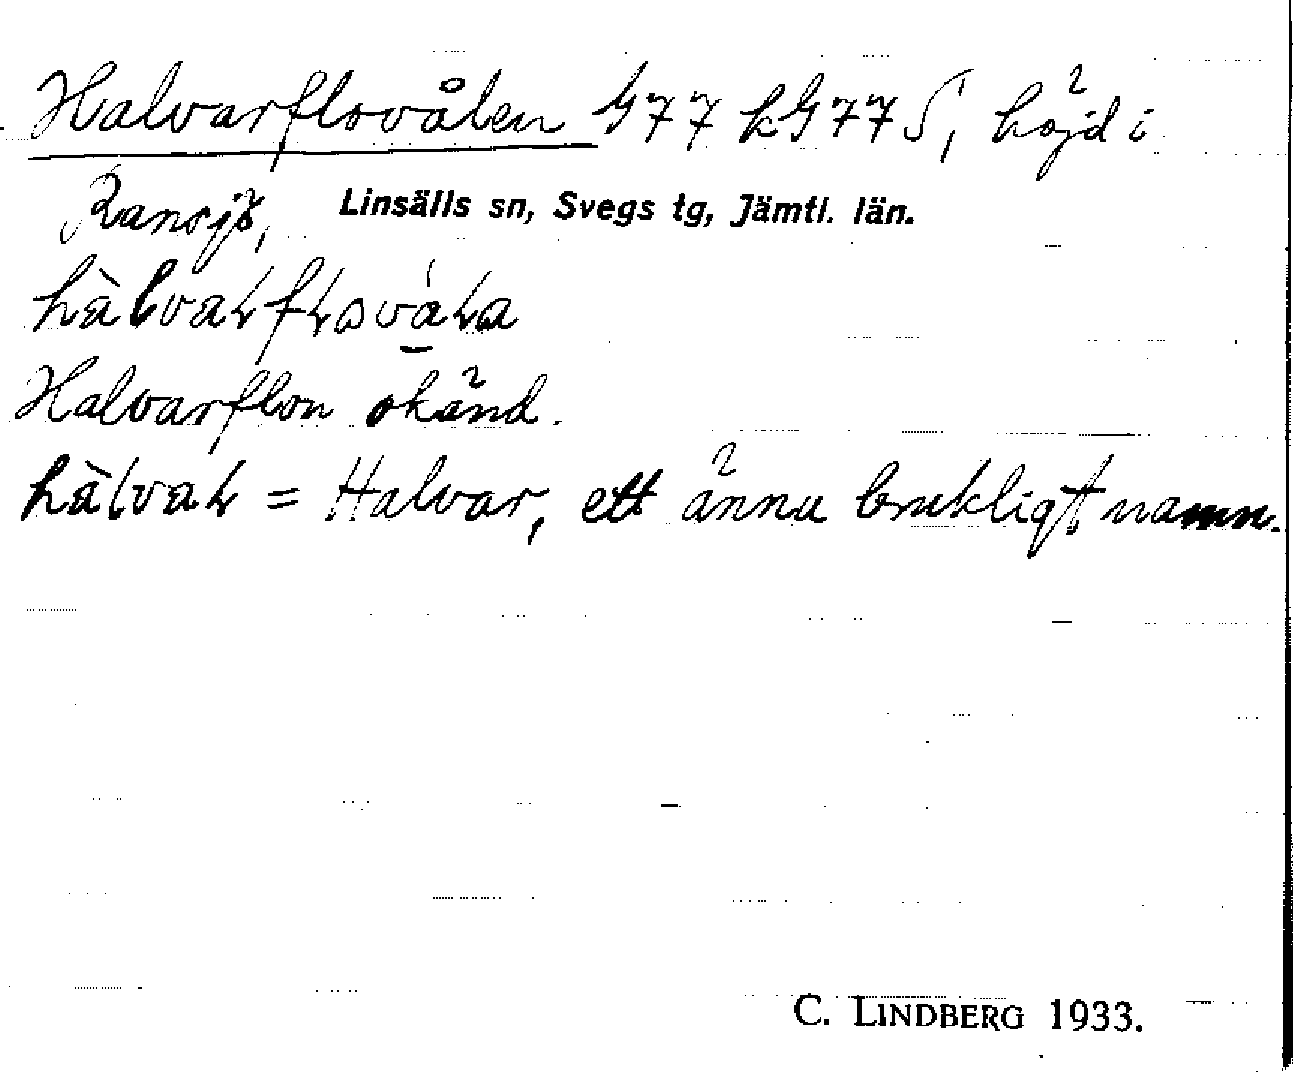 Halvarflovålen G77 kG77 S, höjd i
Ransjö, Linsälls sn, Svegs tg, Jämtl. län.
Halvarflon okänd.
= Halvar, ett ännu brukligt namn.
C. LINDBERG 1933.